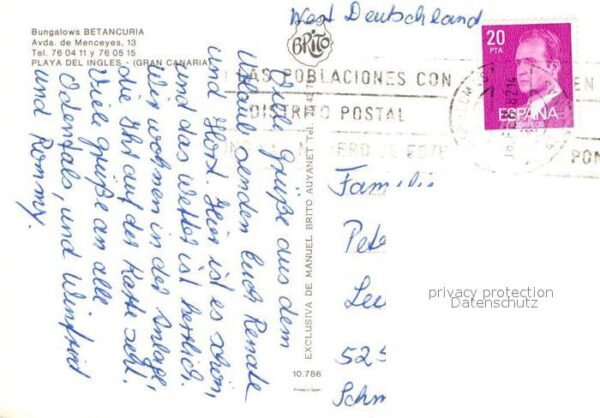 Bungalows BETANCURIA
Avda. de Menceyes, 13
Tel. 76 04 11 y 76 05 15
PLAYA DEL INGLES - (GRAN CANARIA)
West Deutschland
BRITO
20
PTA
ESPAÑA
CORREOS
LAS POBLACIONES CON
DISTRITO POSTAL
Viele Grüße aus dem
Urlaub senden Euch Renate
und Horst. Hier ist es schön,
und das Wetter ist herrlich.
Wir wohnen in der Anlage,
die Ihr auf der Karte seht.
Viele Grüße an alle
Odenthals, und Winfried
und Rommy.
EXCLUSIVA DE MANUEL BRITO AUYANET Tel.
10.786
Printed in Spain
Familie
Pete
Leu
525
Schm
privacy protection
Datenschutz